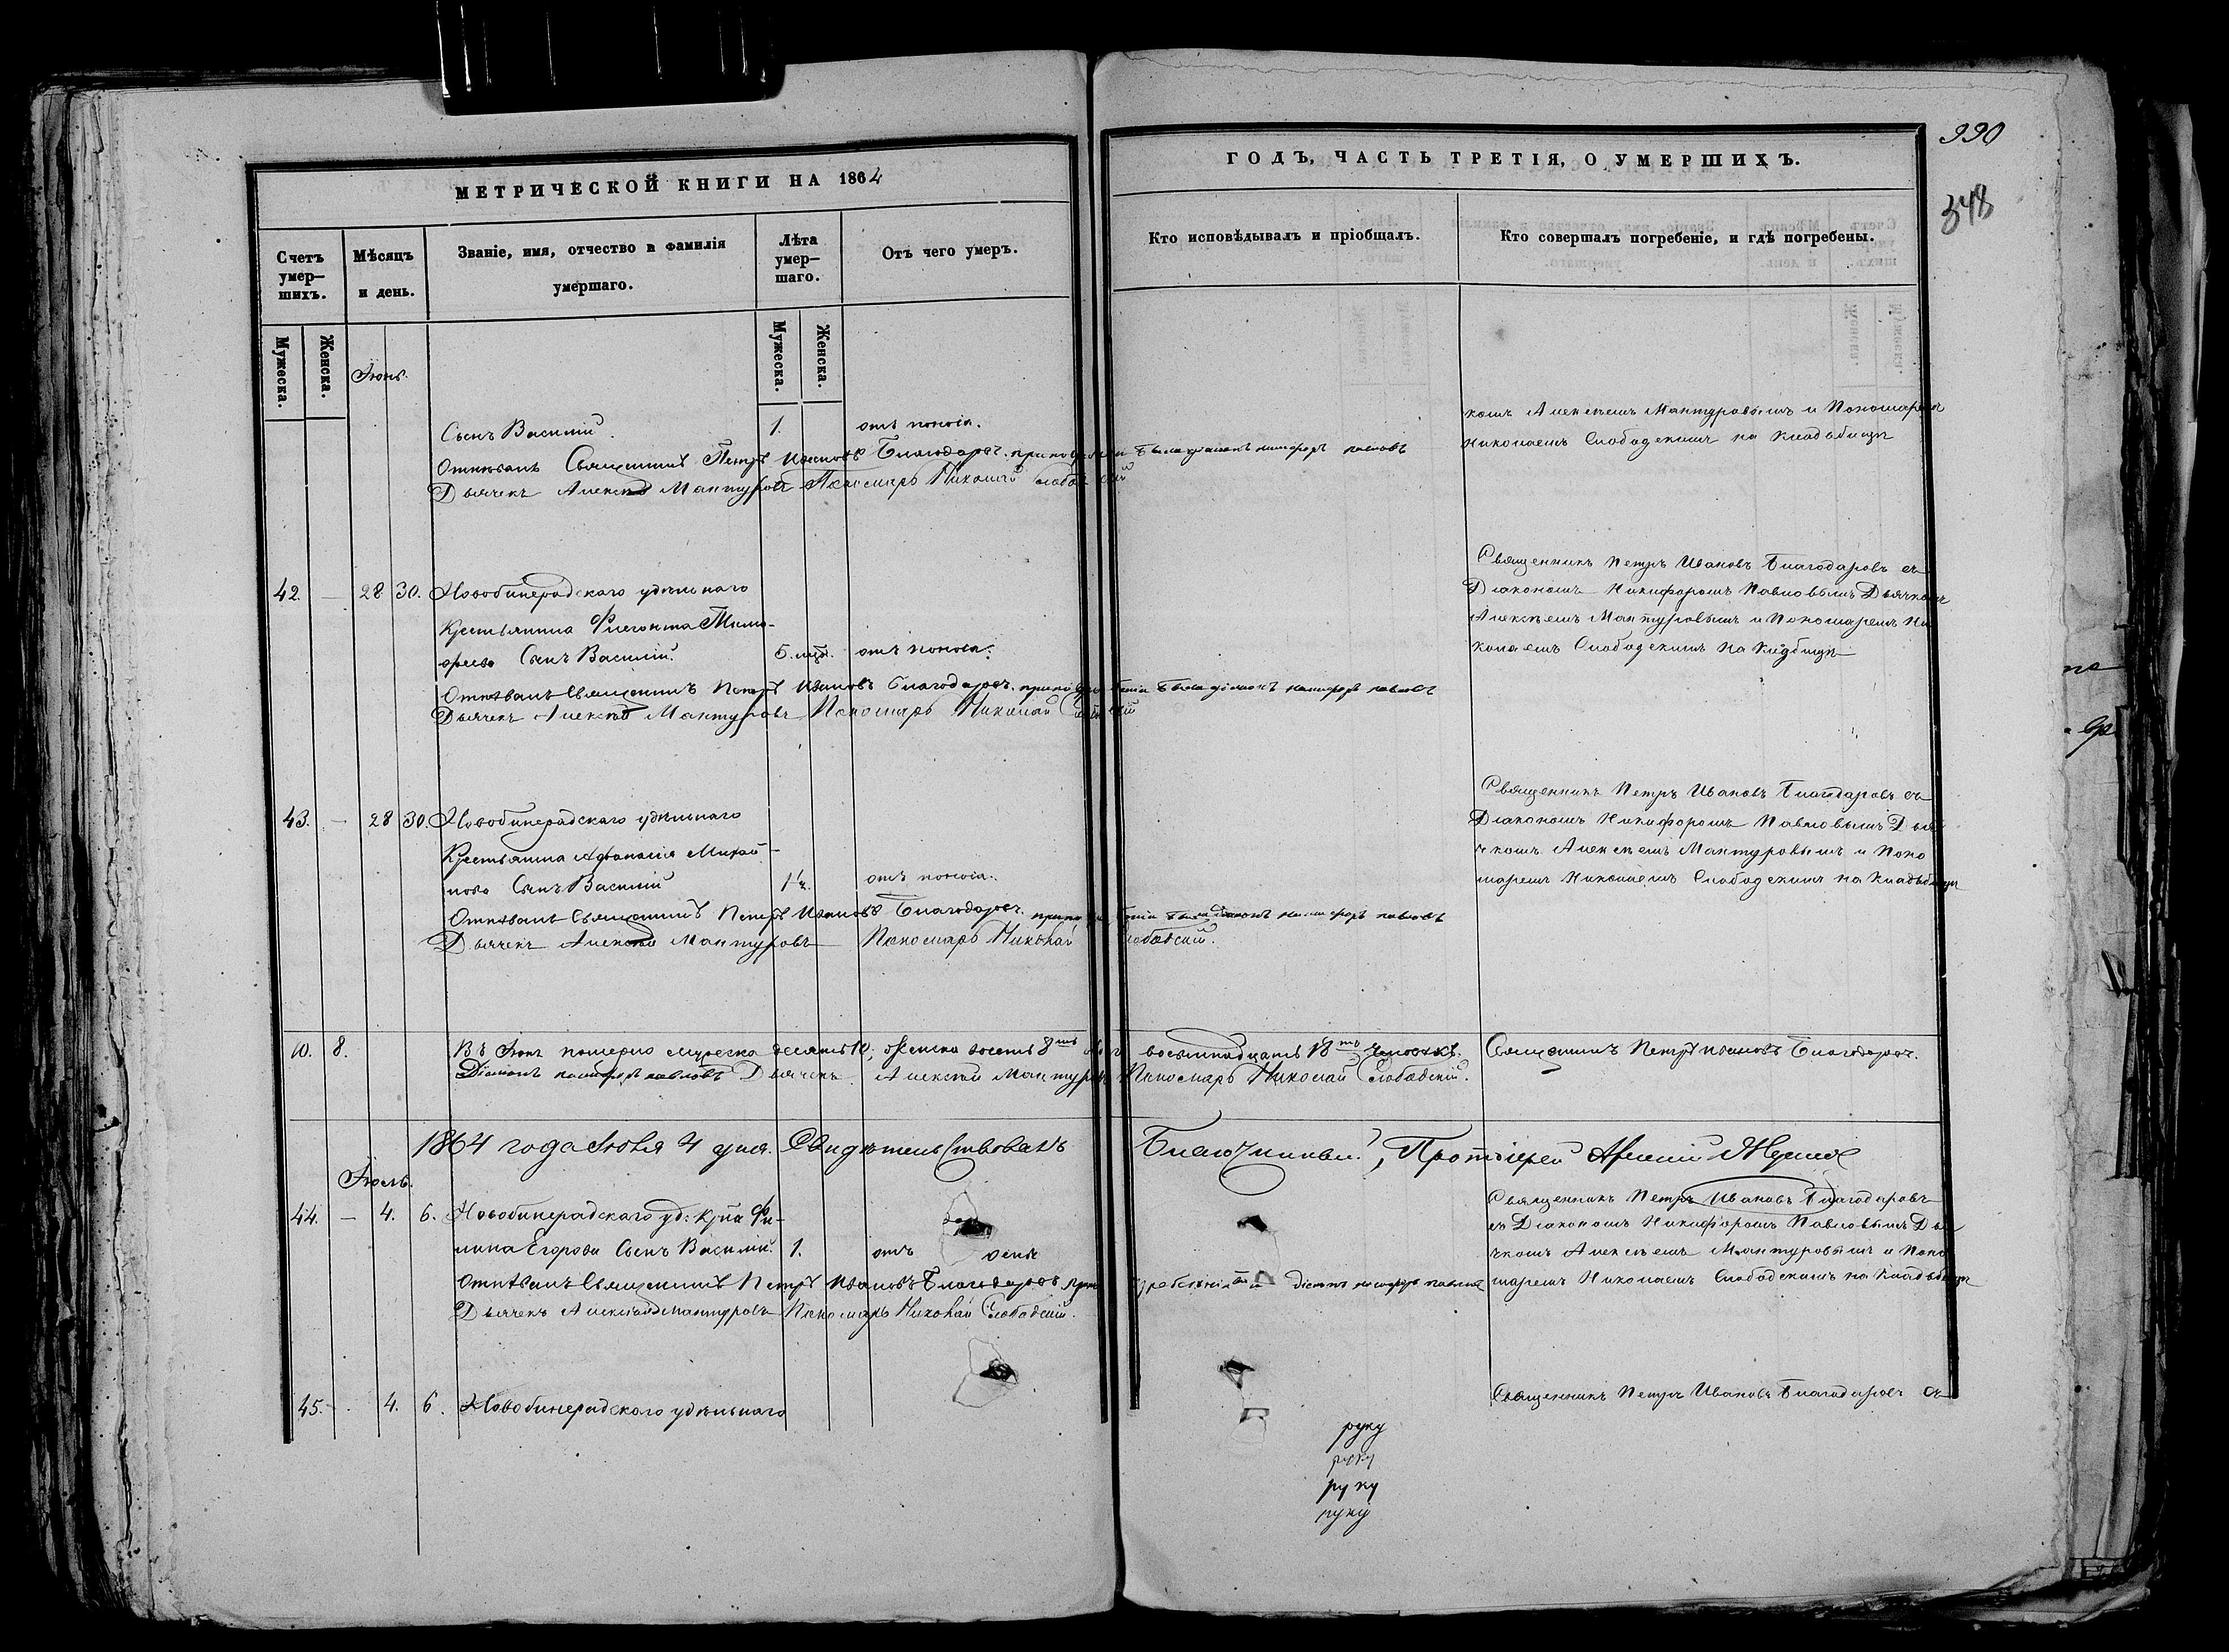 МЕТРИЧЕСКОЙ КНИГИ НА 1864
Счетъ умер-шихъ.
Мѣсяцъ и день.
Званіе, имя, отчество и фамилія умершаго.
Лѣта умер-шаго.
Отъ чего умеръ.
Мужеска.
Женска.
Мужеска.
Женска.
Іюнь.
Сынъ Василій. 1. отъ поноса.
Отпѣвалъ Священникъ Петръ Ивановъ Благодаровъ. при погребеніи былъ діаконъ никифоръ павловъ
Дьячекъ Алексѣй Мантуровъ Пономарь Николай Слободскій
42. — 28 30. Новобинерадскаго удѣльнаго
Крестьянина Флегонта Тимо-
феева Сынъ Василій. 5. мцъ. отъ поноса.
Отпѣвалъ Священникъ Петръ Ивановъ Благодаровъ. при погребеніи былъ діаконъ никифоръ павловъ
Дьячекъ Алексѣй Мантуровъ Пономарь Николай Слободскій
43. — 28 30. Новобинерадскаго удѣльнаго
Крестьянина Афанасія Михай-
лова Сынъ Василій 1½. отъ поноса.
Отпѣвалъ Священникъ Петръ Ивановъ Благодаровъ. при погребеніи былъ діаконъ никифоръ павловъ
Дьячекъ Алексѣй Мантуровъ Пономарь Николай Слободскій.
10. 8. Въ Іюнѣ померло мужеска десять 10, женска восемь 8мь обоего восемнадцать 18ть человѣкъ. Священникъ Петръ Ивановъ Благодаровъ.
Діаконъ никифоръ павловъ Дьячекъ Алексѣй Мантуровъ Пономарь Николай Слободскій.
1864 года Іюля 4 дня. Свидѣтельствовалъ Благочинный, Протоіерей
Іюль.
44. — 4. 6. Новобинерадскаго уд: Кр̃на Фи-
липа Егорова Сынъ Василій. 1. отъ
Отпѣвалъ Священникъ Петръ Ивановъ Благодаровъ при погребеніи былъ діаконъ никифоръ павловъ
Дьячекъ Алексѣй Мантуровъ Пономарь Николай Слободскій.
45. — 4. 6. Новобинерадскаго удѣльнаго
ГОДЪ, ЧАСТЬ ТРЕТІЯ, О УМЕРШИХЪ.
990
348
Кто исповѣдывалъ и пріобщалъ.
Кто совершалъ погребеніе, и гдѣ погребены.
комъ Алексѣемъ Мантуровымъ и Пономаремъ
Николаемъ Слободскимъ на Кладбищѣ
Священникъ Петръ Ивановъ Благодаровъ съ
Діакономъ Никифоромъ Павловымъ Дьячкомъ
Алексѣемъ Мантуровымъ и Пономаремъ Ни
колаемъ Слободскимъ на Кладбищѣ
Священникъ Петръ Ивановъ Благодаровъ съ
Діакономъ Никифоромъ Павловымъ Дья
чкомъ Алексѣемъ Мантуровымъ и Поно
маремъ Николаемъ Слободскимъ на Кладбищѣ
Священникъ Петръ Ивановъ Благодаровъ
съ Діакономъ Никифоромъ Павловымъ Дья
чкомъ Алексѣемъ Мантуровымъ и Поно
маремъ Николаемъ Слободскимъ на Кладбищѣ
Священникъ Петръ Ивановъ Благодаровъ съ
руку
руку
руку
руку